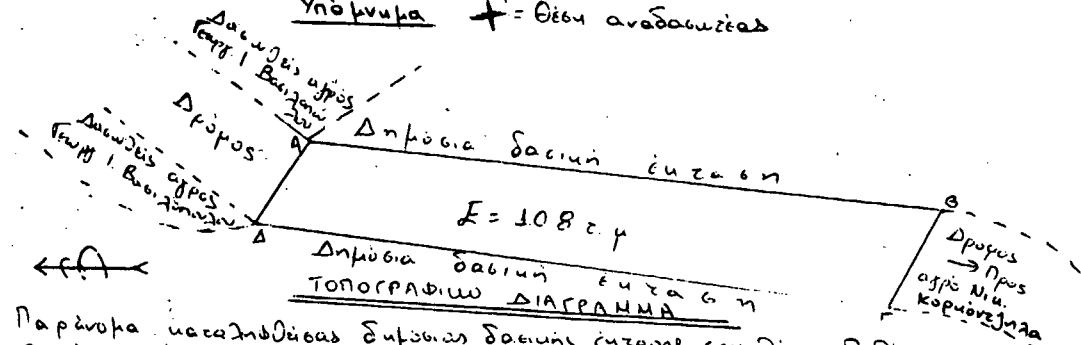 Υπόμνημα + = Θέση αναδασωτέας
Δασωθείς αγρός
Γεωργ. Ι. Βασιλοπού
λου
Δρόμος
Δασωθείς αγρός
Γεωργ. Ι. Βασιλοπούλου
Α
Δημόσια δασική έκταση
Β
Ε = 108 τ.μ
Δ
Δημόσια δασική έκταση
Δρόμος
→ Προς
αγρό Νικ.
Κορκόντζηλα
Γ
ΤΟΠΟΓΡΑΦΙΚΟ ΔΙΑΓΡΑΜΜΑ
Παράνομα καταληφθείσας δημόσιας δασικής έκτασης